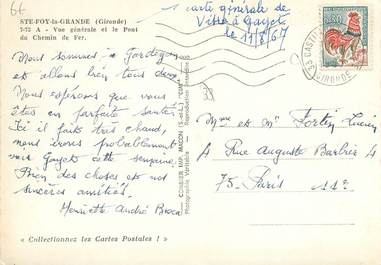 6€
STE-FOY-la-GRANDE (Gironde)
7-72 A - Vue générale et le Pont
du Chemin de Fer.
Carte générale de
Visite à Gayet
le 11/8/67
0,30
GIRONDE
Nous sommes à
et allons très tous deux
Nous espérons que vous
êtes en parfaite santé
Ici il fait très chaud,
nous irons probablement
voir Gayet cette semaine
Bien des choses et nos
sincères amitiés.
Henriette André Brosca
COMBIER IMP. MACON (S.-et-L.) "CIM"
Photographie Véritable - Reproduction interdite
Mme et Mr Fortin Lucien
4 Rue Auguste Barbier 4
75 - Paris 11e
« Collectionnez les Cartes Postales ! »